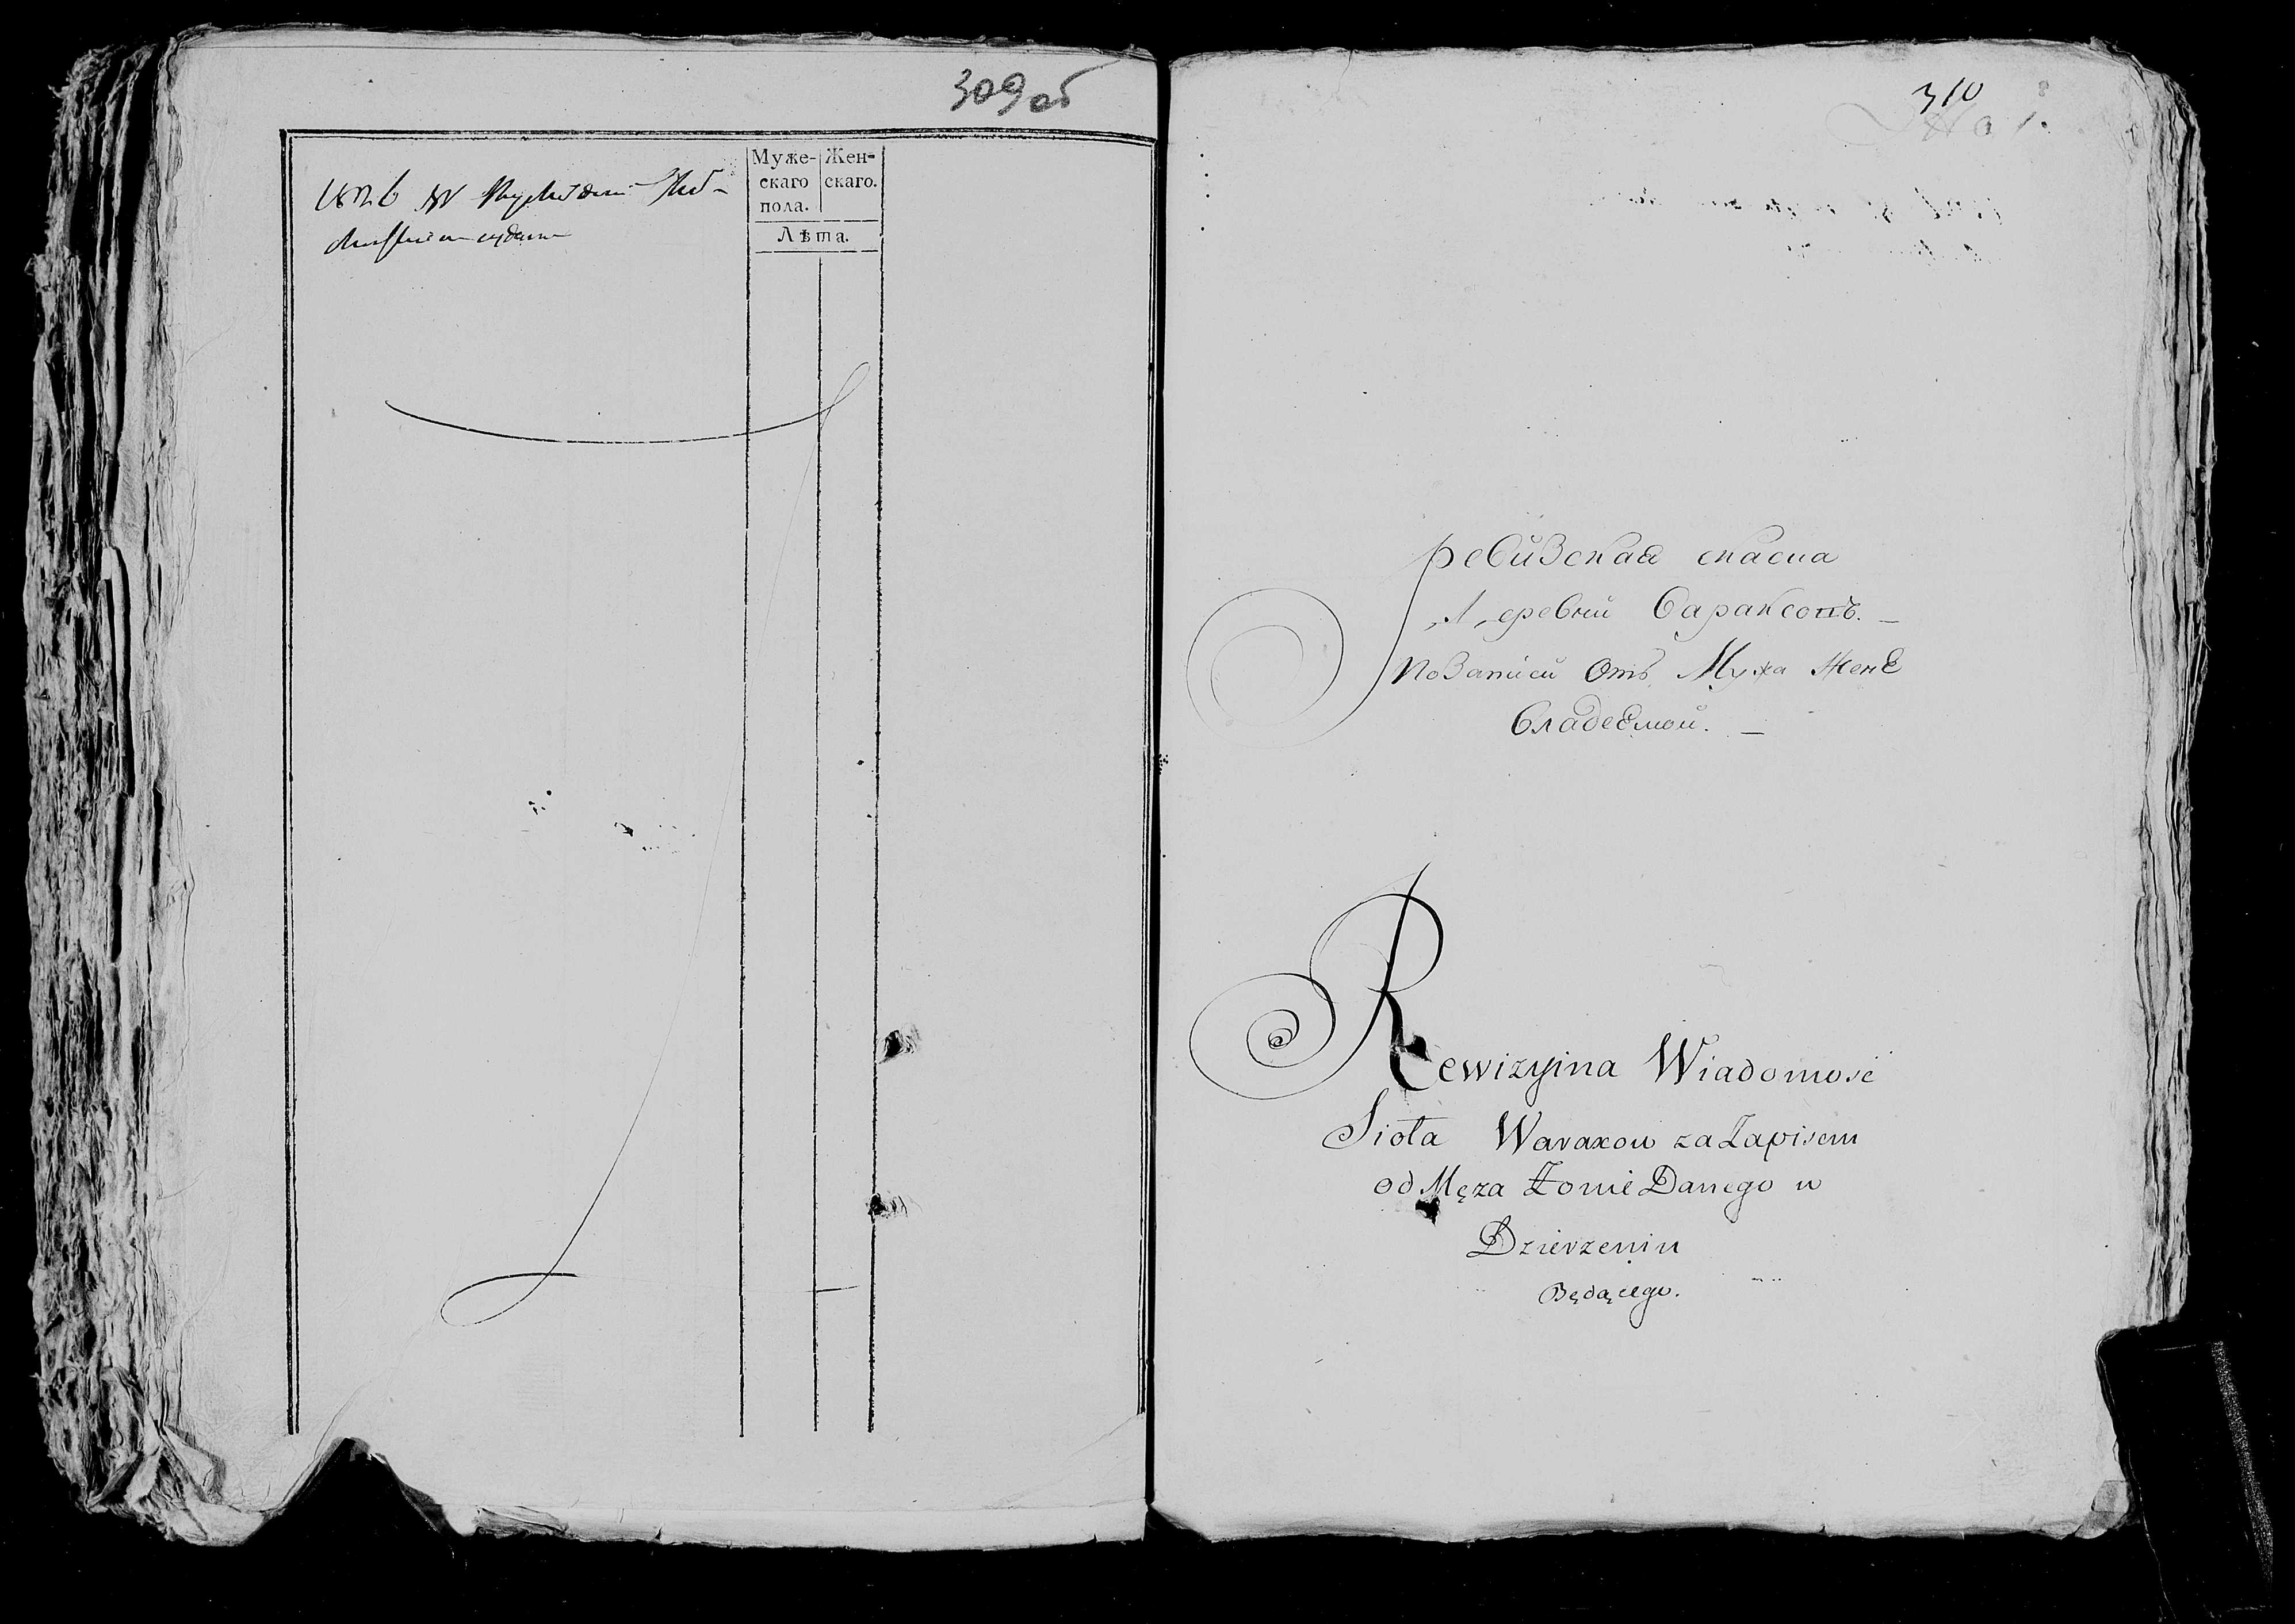 309 об
Муже- Жен-
скаго скаго.
пола.
Лѣта.
310
No 1.
ревизская скаска
деревни вараксовъ. —
по записи отъ Мужа Жене
владеемой. —
Rewizyina Wiadomosć
Sioła Waraxow za Zapisem
od Męza Żonie Danego w
Dzierzeniu
Będącego.